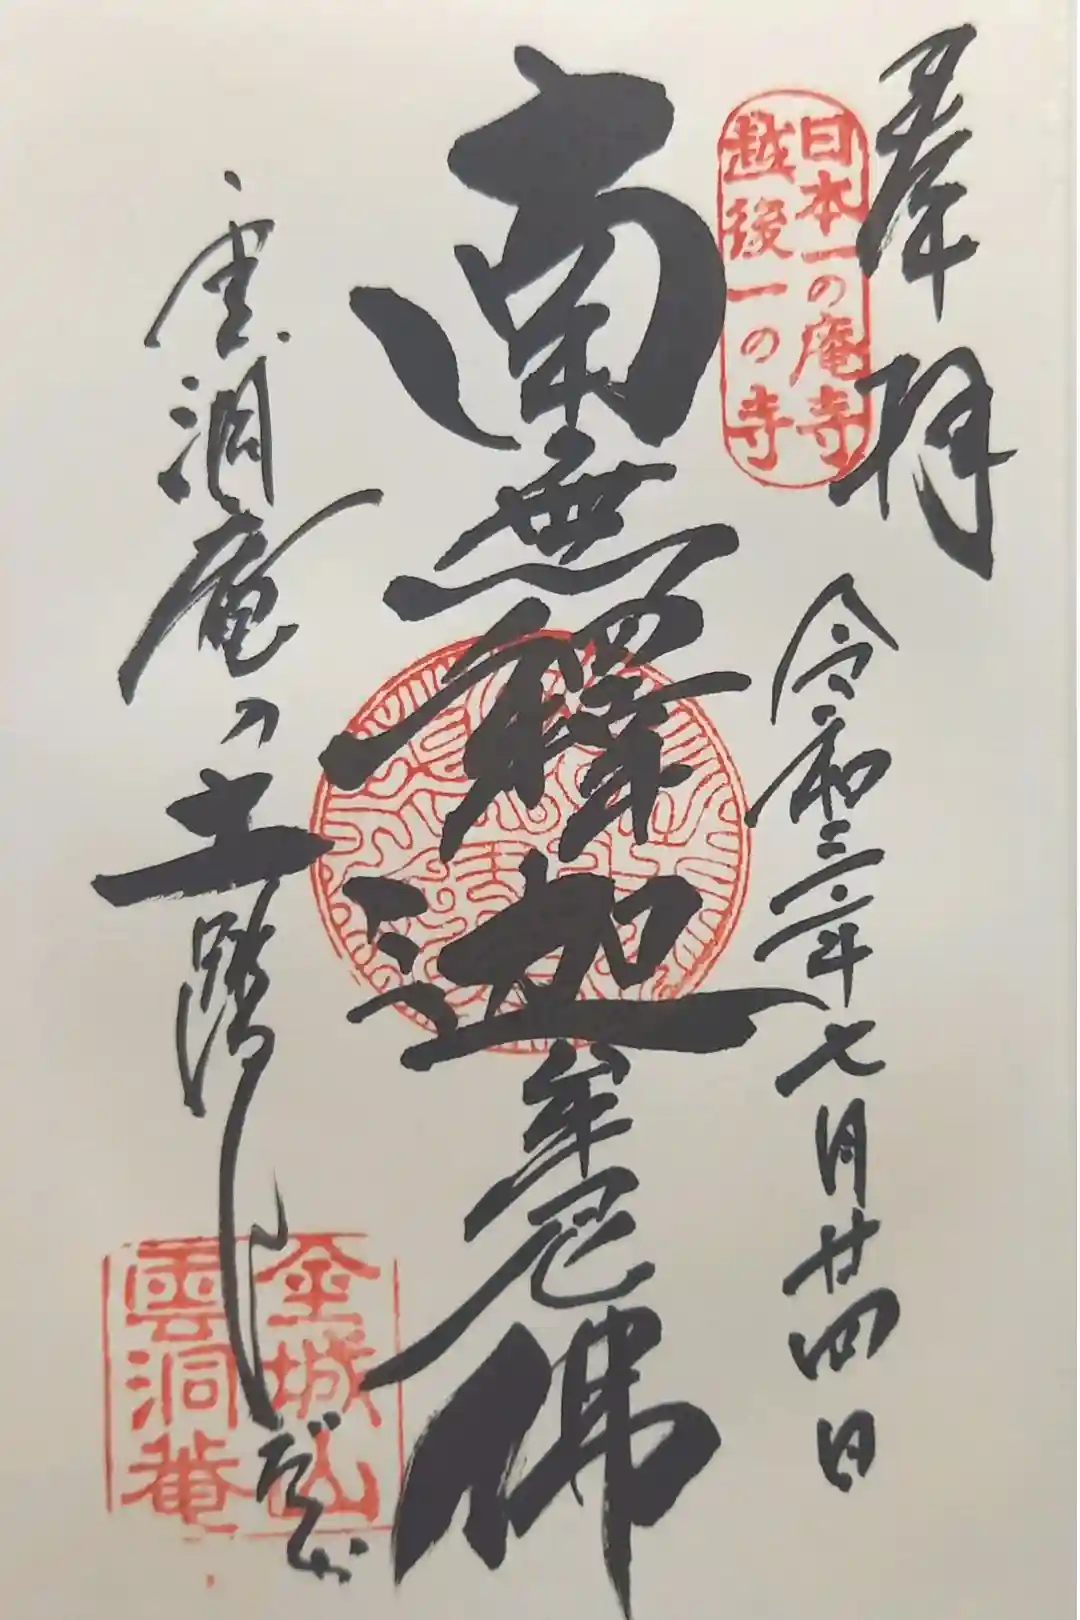 奉拝
日本一の庵寺
越後一の寺
令和三年七月廿四日
南無釋迦牟尼佛
雲洞庵の土踏しだか
金城山
雲洞菴